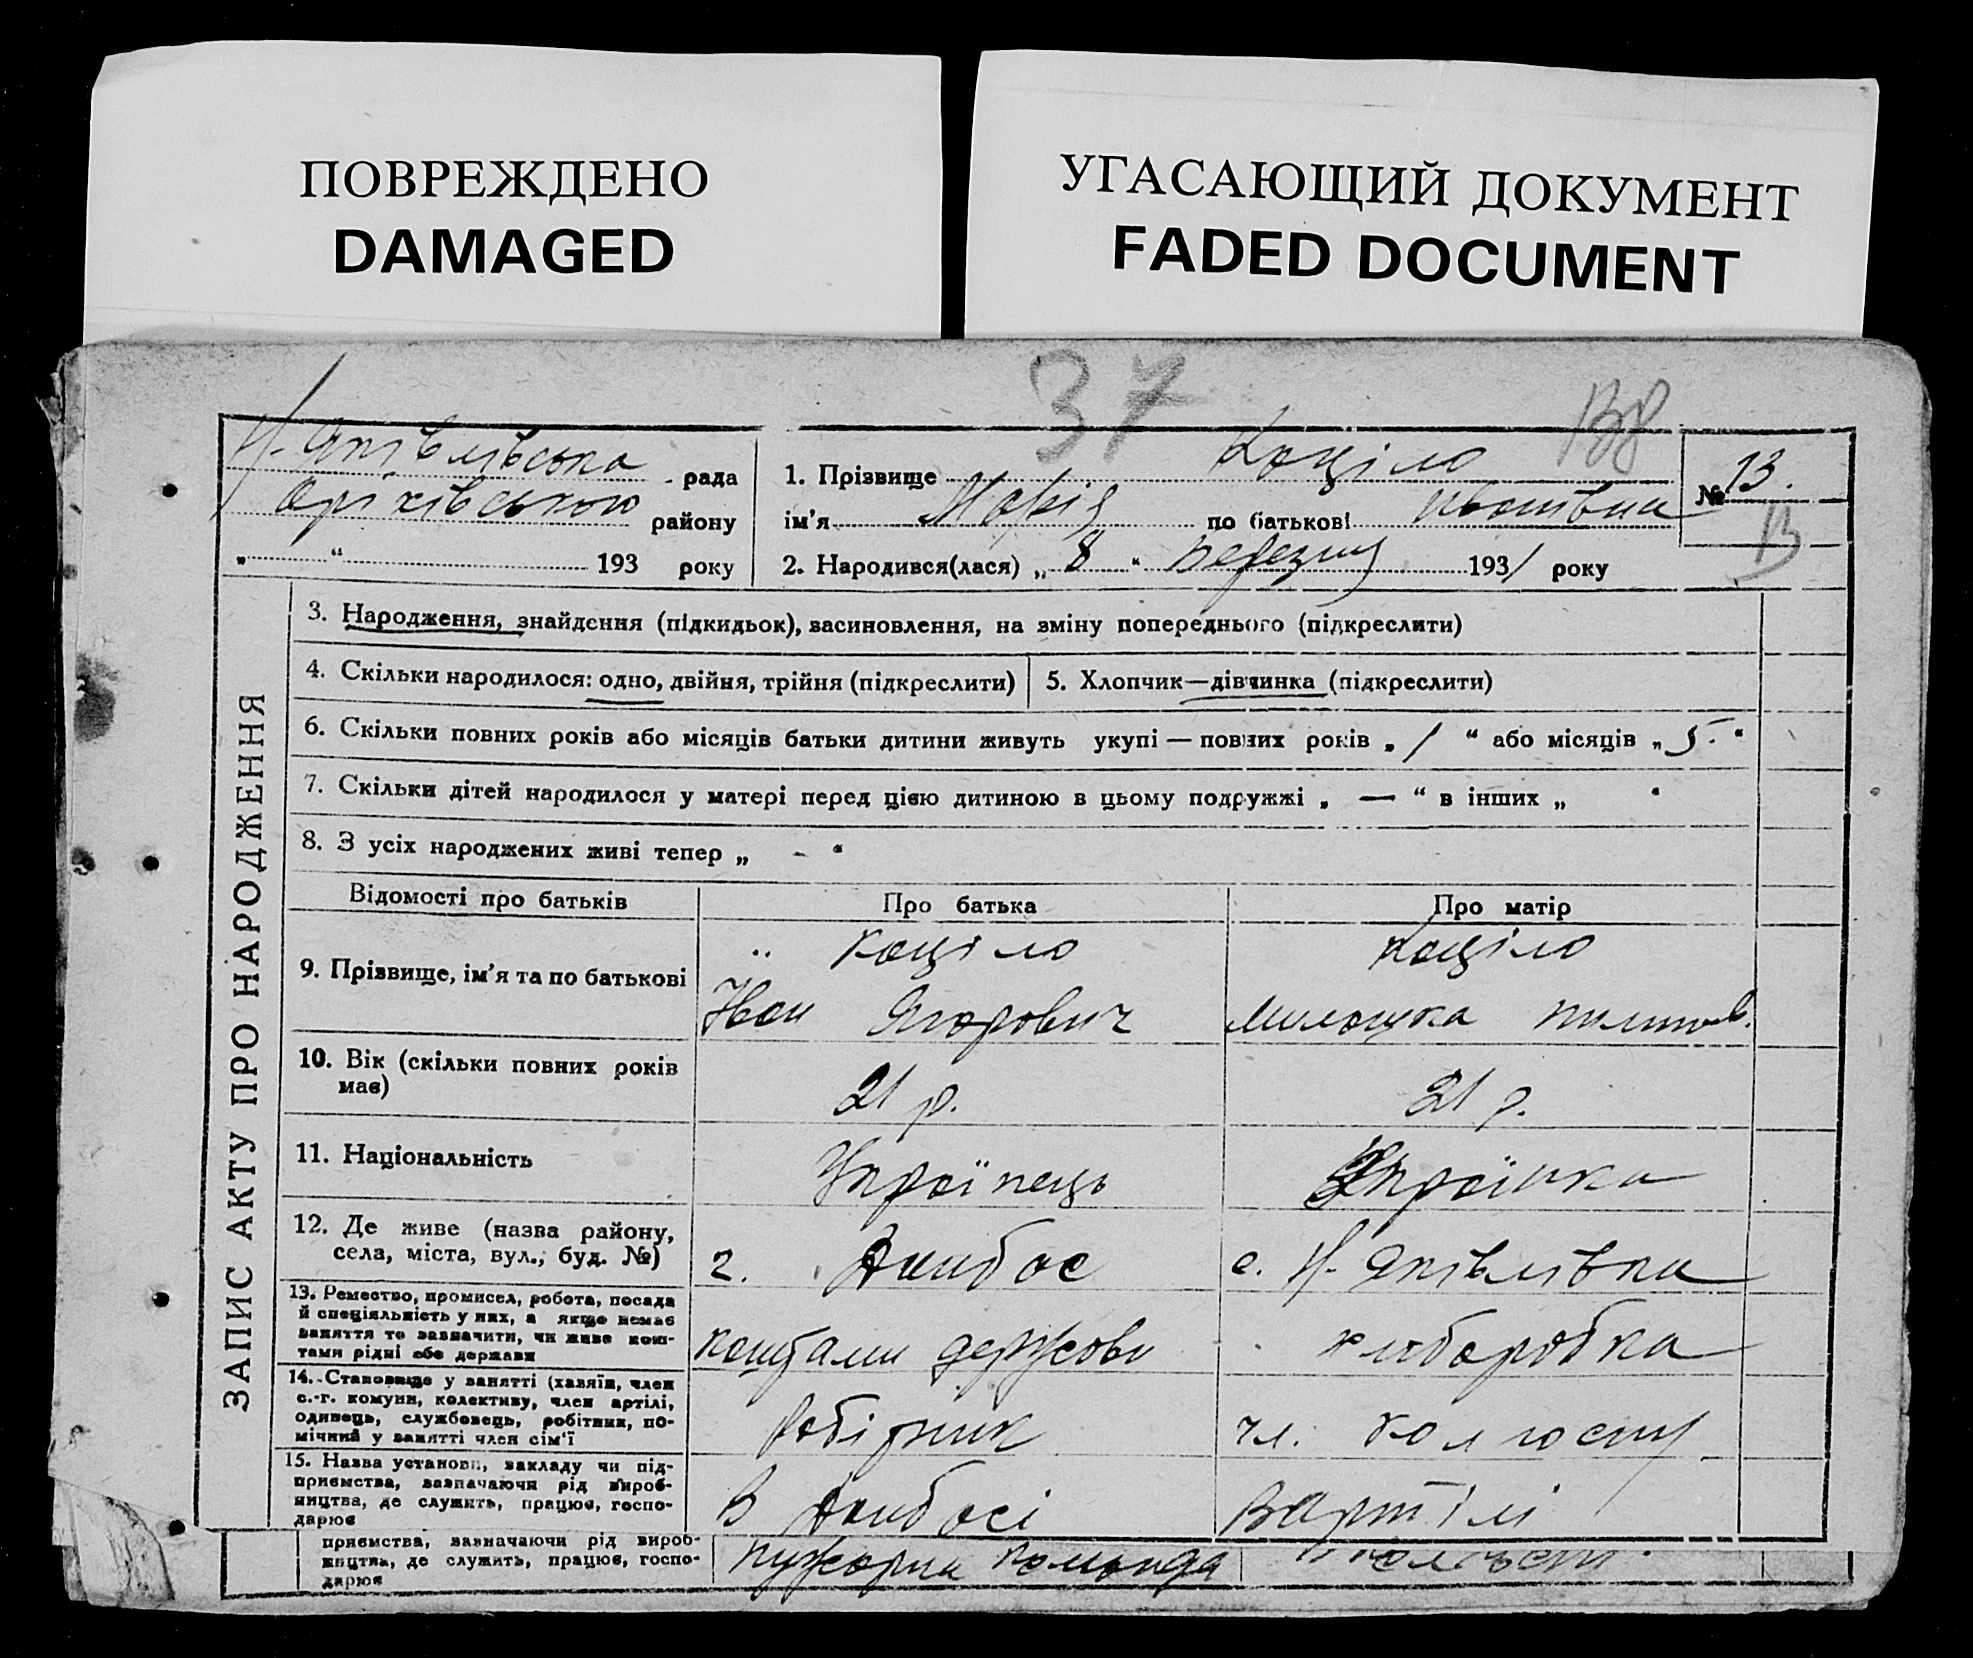 ПОВРЕЖДЕНО
DAMAGED
УГАСАЮЩИЙ ДОКУМЕНТ
FADED DOCUMENT
37
Н-Яківлівська рада
Оріхівського району
„ “ 193 року
1. Прізвище Коціло
ім'я Марія по батькові Ивановна
2. Народився(лася) „ 8 “ Березня 1931 року
№ 13.
ЗАПИС АКТУ ПРО НАРОДЖЕННЯ
3. Народження, знайдення (підкидьок), засиновлення, на зміну попереднього (підкреслити)
4. Скільки народилося: одно, двійня, трійня (підкреслити)
5. Хлопчик—дівчинка (підкреслити)
6. Скільки повних років або місяців батьки дитини живуть укупі — повних років „ 1 “ або місяців „ 5. “
7. Скільки дітей народилося у матері перед цією дитиною в цьому подружжі „ — “ в інших „ “
8. З усіх народжених живі тепер „ - “
Відомості про батьків Про батька Про матір
9. Прізвище, ім'я та по батькові
Коціло
Іван Ягорович
Коціло
10. Вік (скільки повних років
має)
21 р.
21 р.
11. Національність
Українець
Українка
12. Де живе (назва району,
села, міста, вул., буд. №)
г. Донбас
с. Н-Яківлівка
13. Ремество, промисел, робота, посада
й спеціяльність у них, а якщо немає
заняття то зазначити, чи живе кош-
тами рідні або держави
коштами держави
хлиборобка
14. Становище у занятті (хазяїн, член
с.-г. комуни, колективу, член артілі,
одинець, службовець, робітник, по-
мічний у занятті член сім'ї
робітник
чл. колгоспу
15. Назва установи, закладу чи під-
приємства, зазначаючи рід вироб-
ництва, де служить, працює, госпо-
дарює
В Донбасі
В артілі
приємства, зазначаючи рід вироб-
ництва, де служить, працює, госпо-
дарює
команда